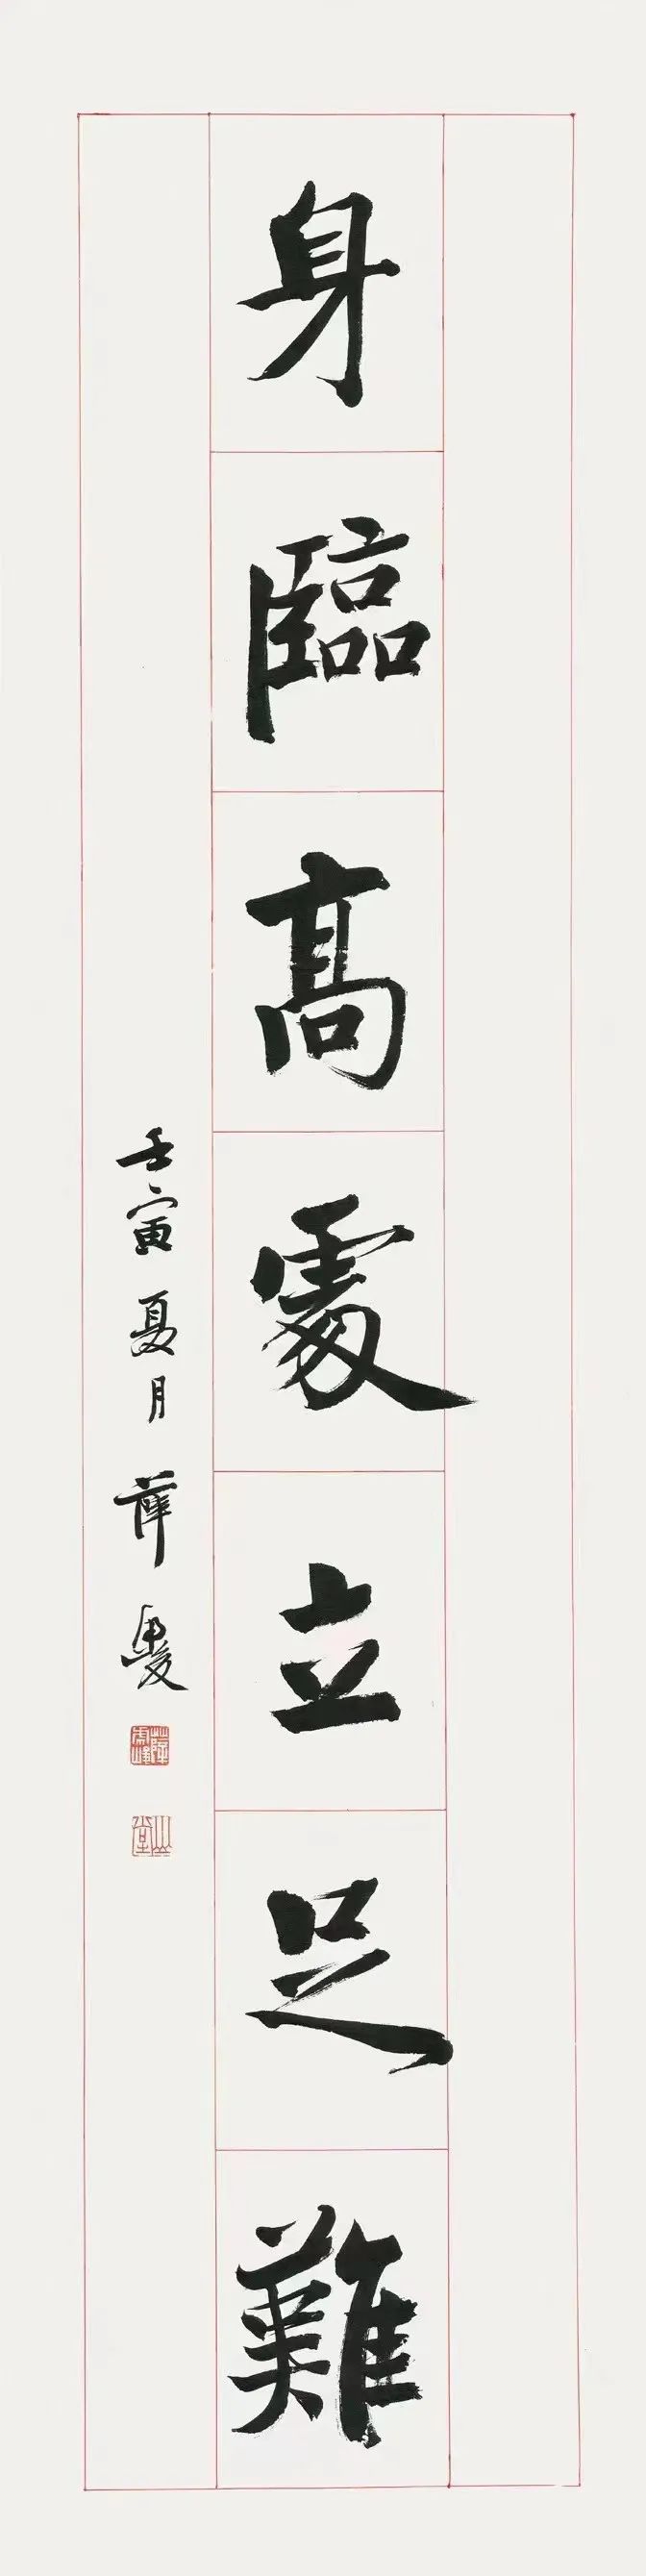 身臨高處立足難
壬寅夏月薛